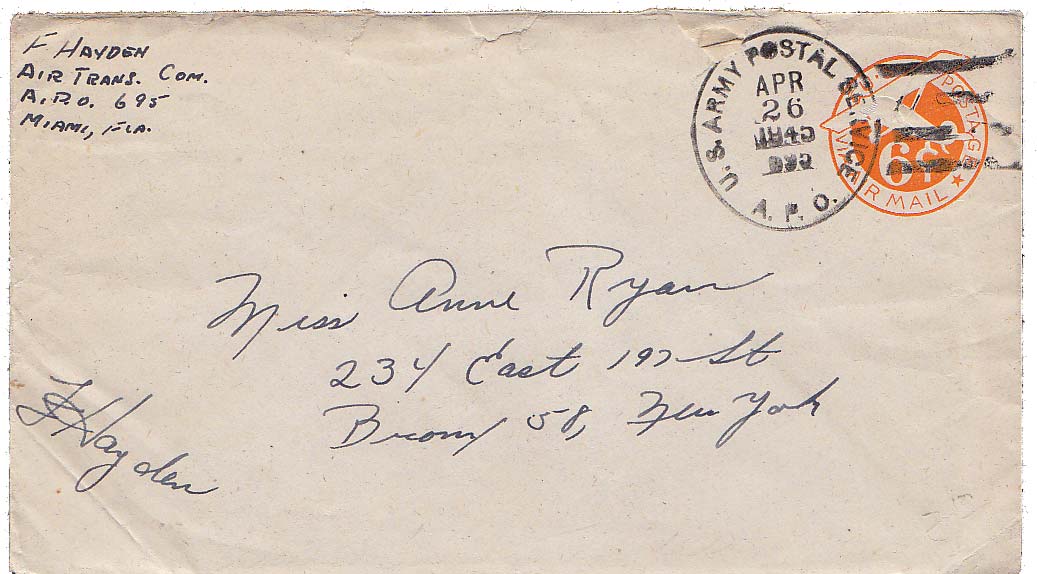 F HAYDEN
AIR TRANS. COM.
A.P.O. 695
MIAMI, FLA.
U.S. ARMY POSTAL SERVICE
APR
26
1945
A.P.O.
POSTAGE
6¢
VIA AIR MAIL
Miss Anne Ryan
234 East 197 St
Bronx 58, New York
F Hayden